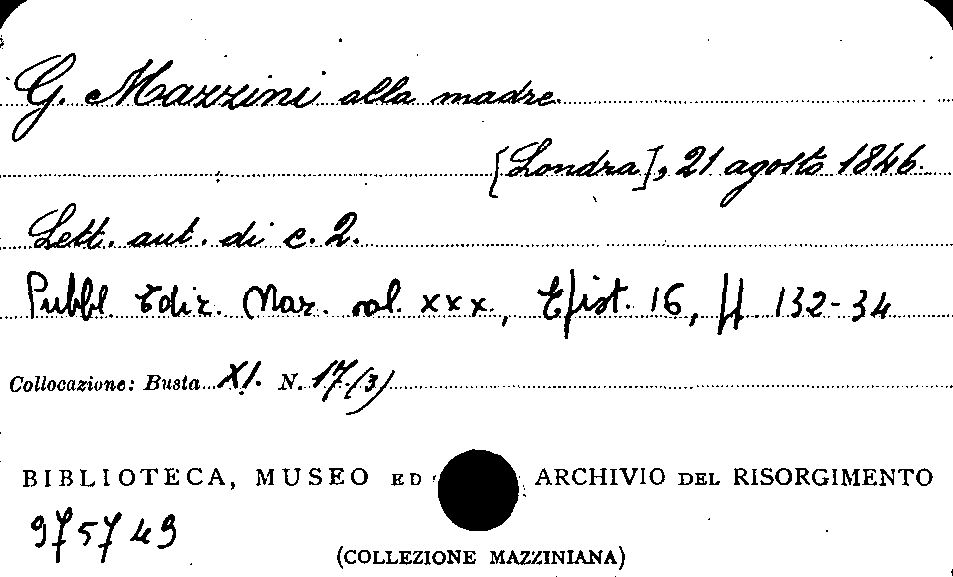 G. Mazzini alla madre
[Londra], 21 agosto 1846.
Lett. aut. di c. 2.
Pubbl. Ediz. Naz. vol. XXX., Epist. 16, pp. 132-34
Collocazione: Busta XI. N. 17(3)
BIBLIOTECA, MUSEO ED ARCHIVIO DEL RISORGIMENTO
975749
(COLLEZIONE MAZZINIANA)